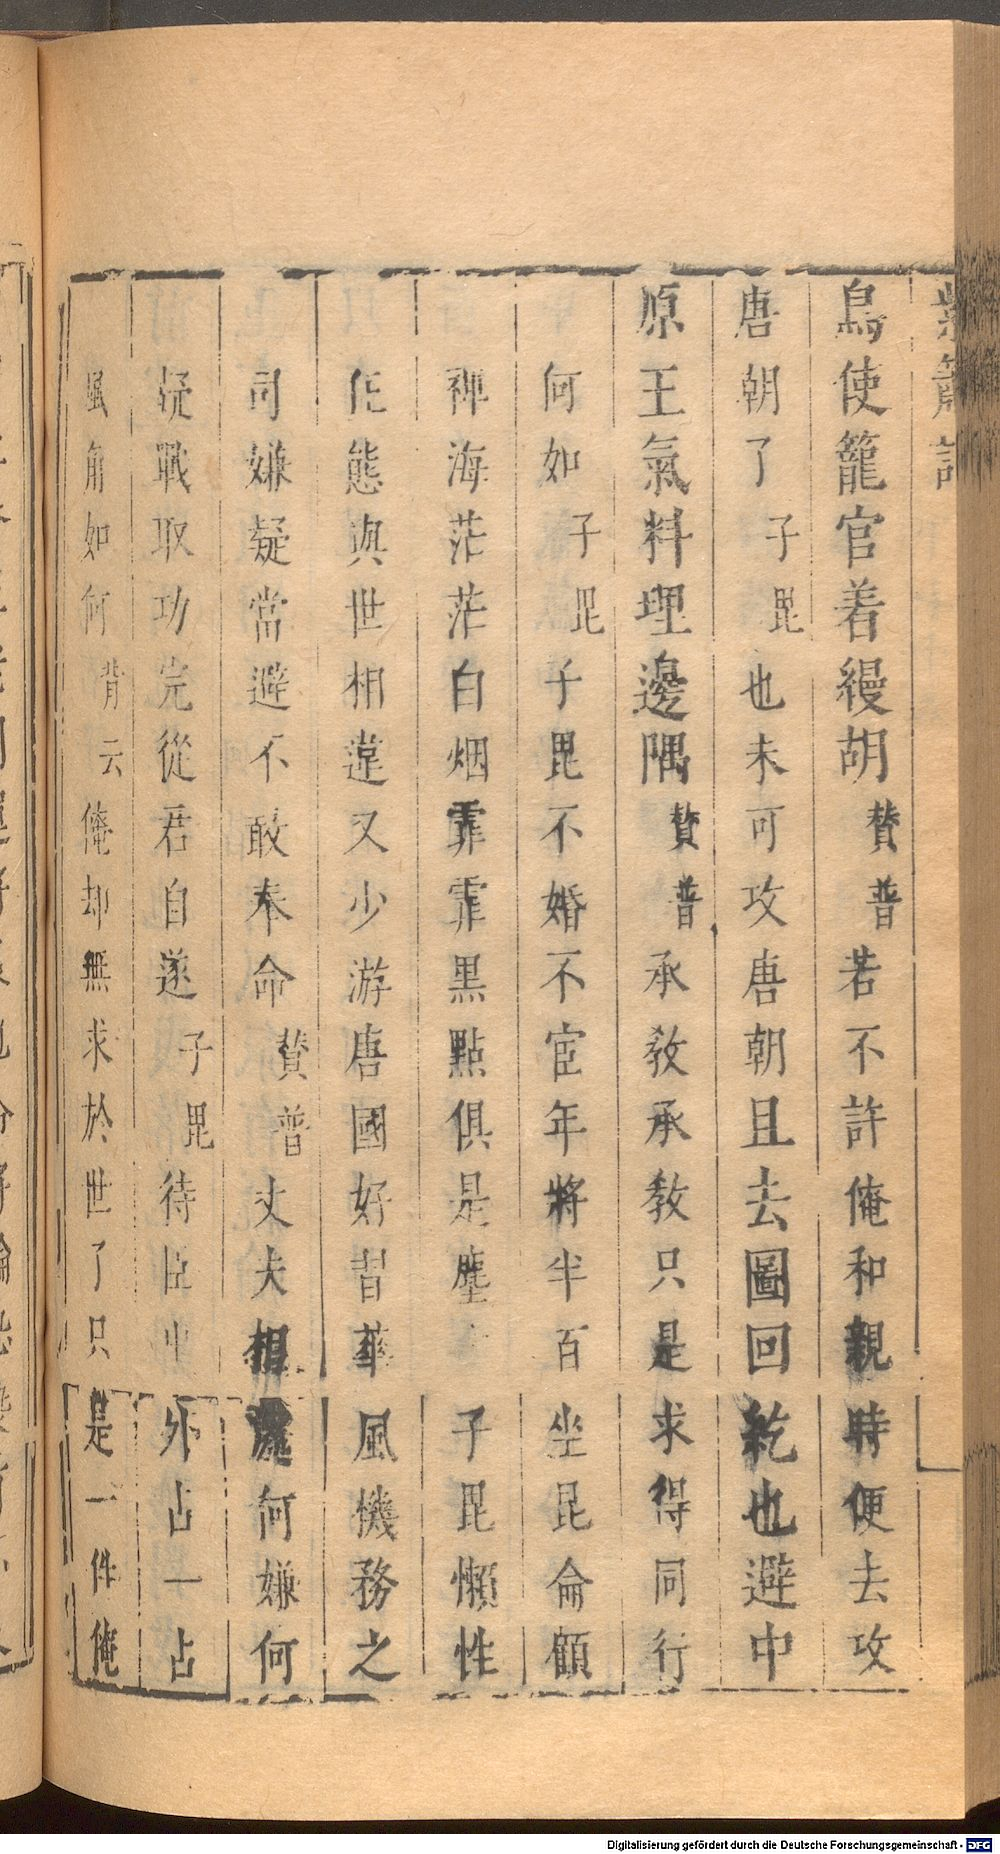 紫簫記
鳥使籠官着縵胡贊普若不許俺和親時便去攻
唐朝了子毘也未可攻唐朝且去圖回紇也避中
原王氣料理邊隅贊普承敎承敎只是求得同行
何如子毘子毘不婚不宦年將半百坐昆侖顧
裨海茫茫白烟霏霏黒點俱是塵子毘懶性
侘態與世相違又少游唐國好習華風機務之
司嫌疑當避不敢奉命贊普丈夫相處何嫌何
疑戰取功完從君自遂子毘待臣出外占一占
風角如何背云俺却無求於世了只是一件俺
Digitalisierung gefördert durch die Deutsche Forschungsgemeinschaft - DFG